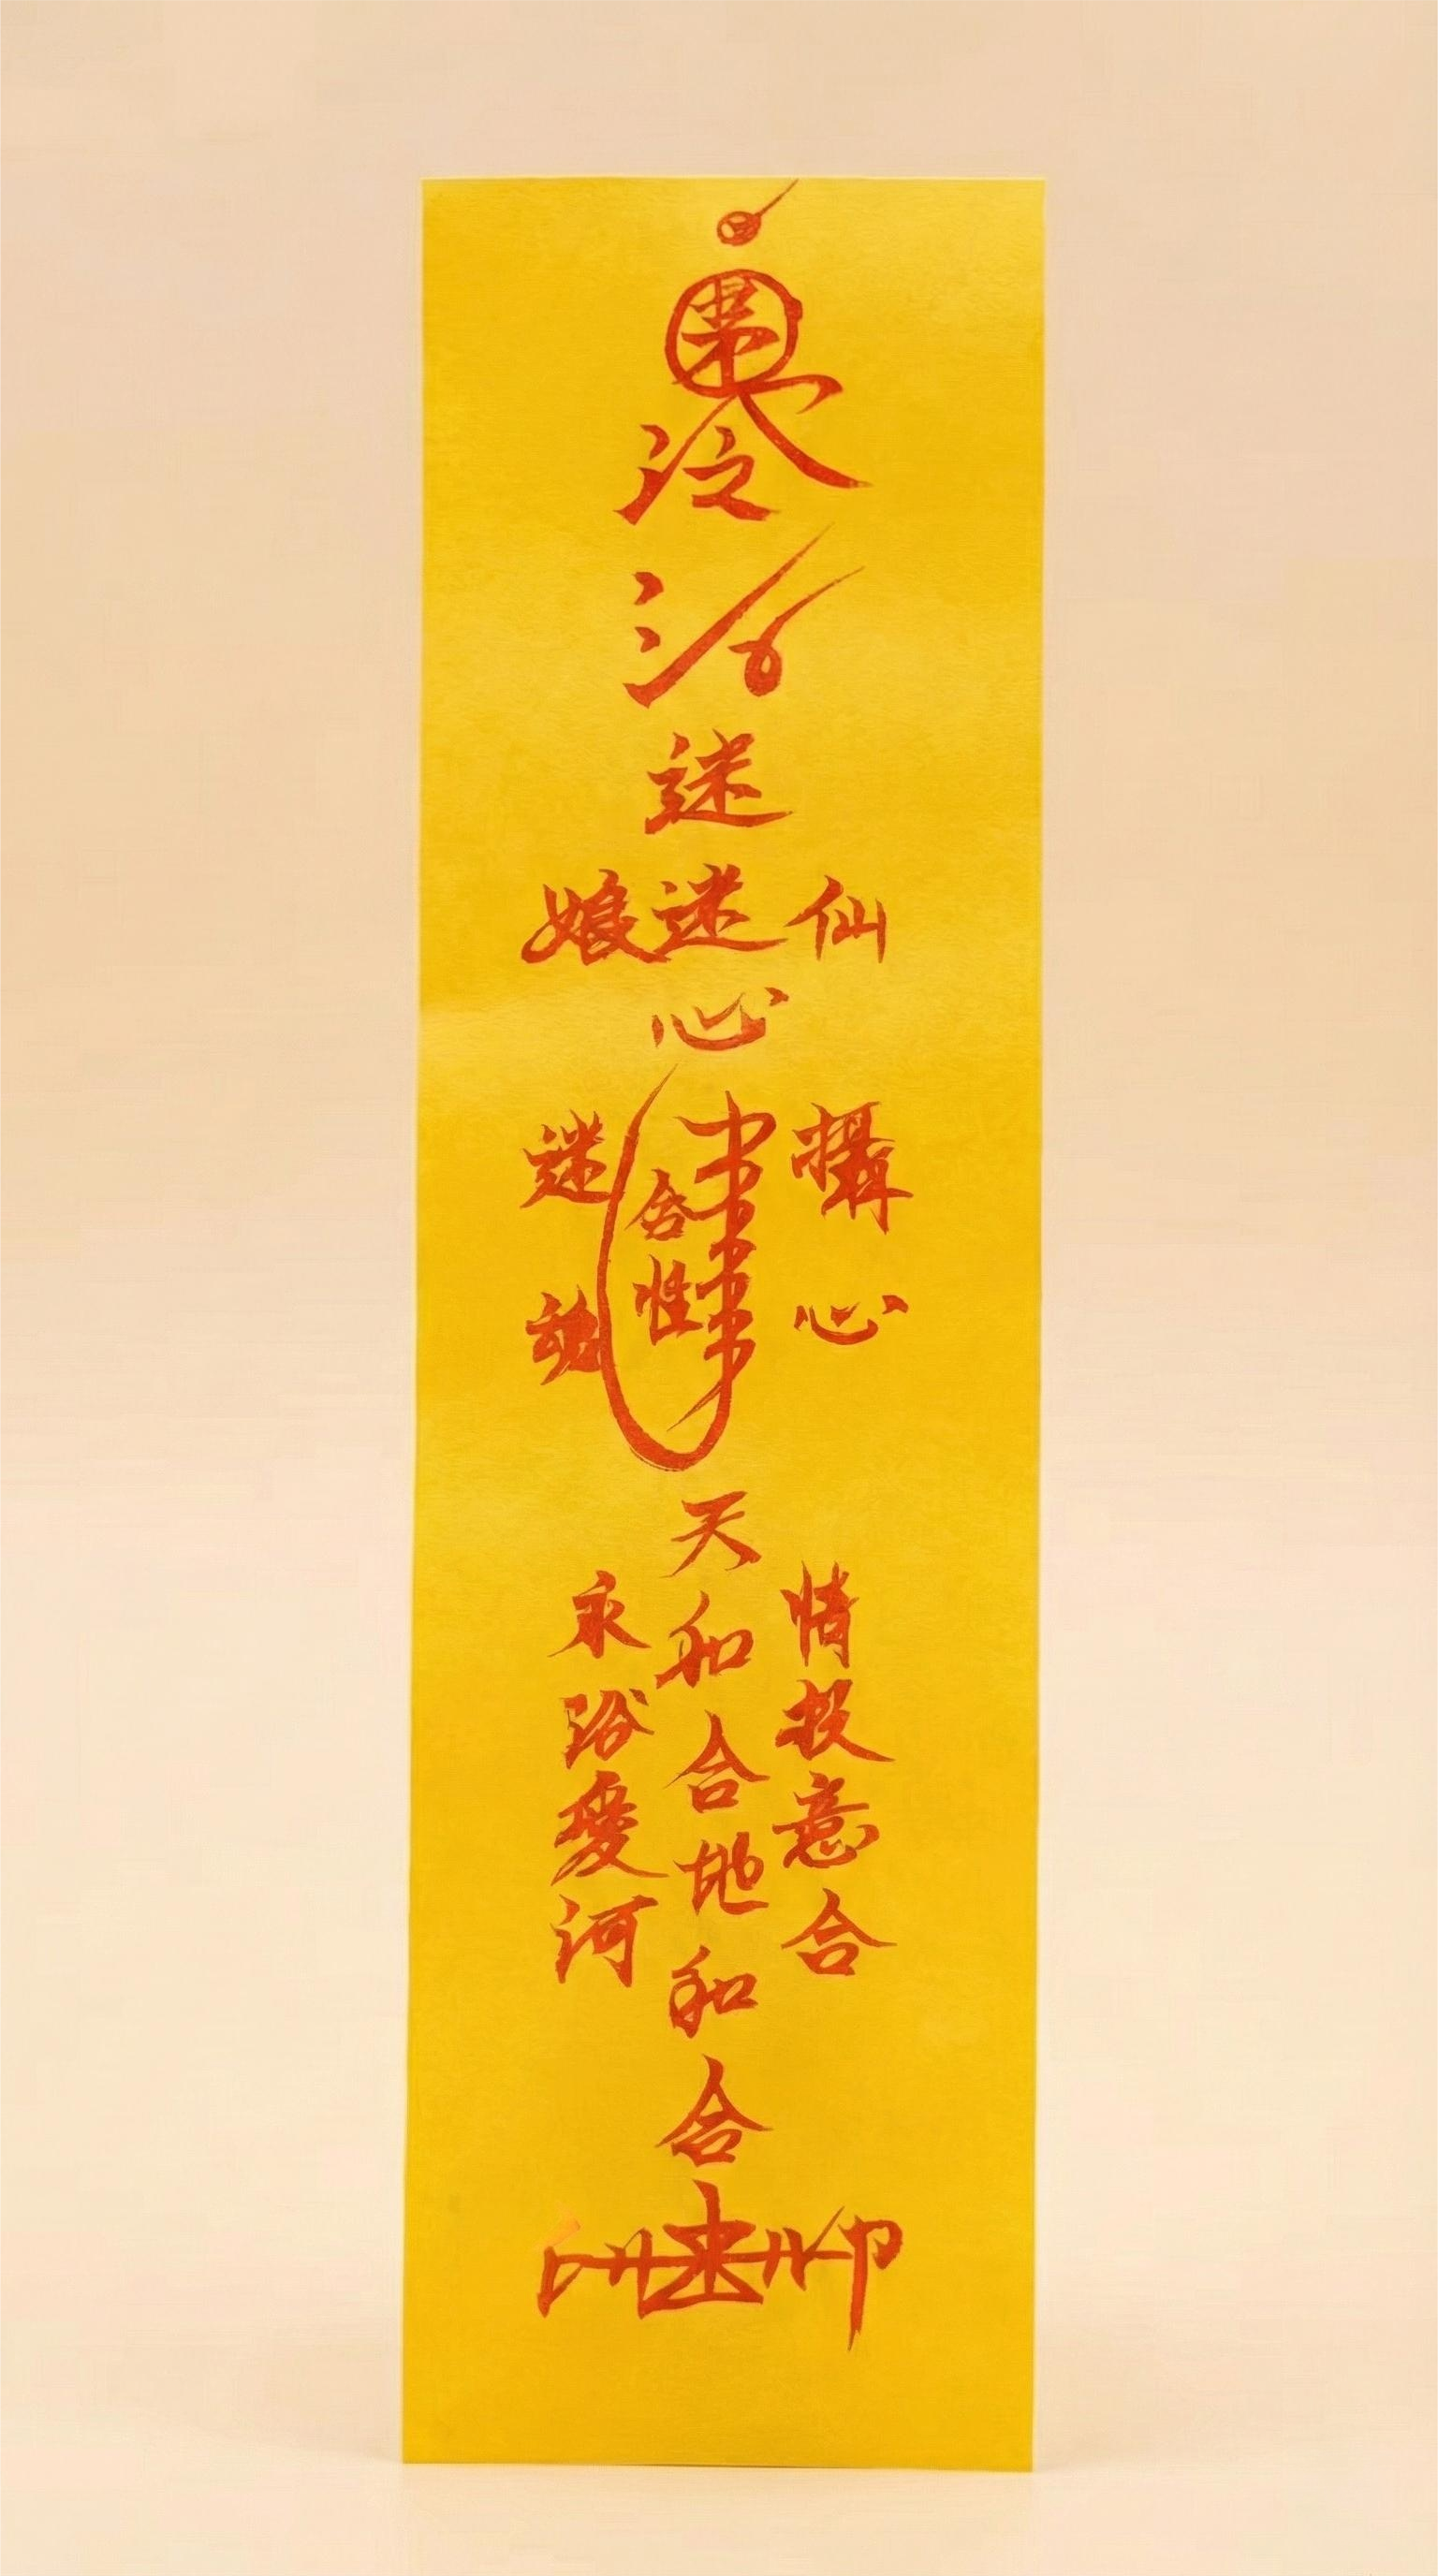 迷
仙迷娘
心
攝心
合性
迷魂
天和合地和合
情投意合
永浴愛河